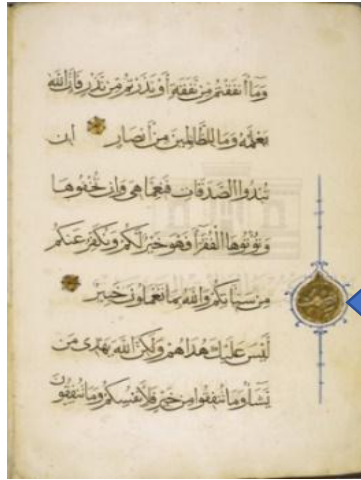 وَمَا أَنفَقْتُم مِّن نَّفَقَةٍ أَوْ نَذَرْتُم مِّن نَّذْرٍ فَإِنَّ اللَّهَ
يَعْلَمُهُ وَمَا لِلظَّالِمِينَ مِنْ أَنصَارٍ إِن
تُبْدُوا الصَّدَقَاتِ فَنِعِمَّا هِيَ وَإِن تُخْفُوهَا
وَتُؤْتُوهَا الْفُقَرَاءَ فَهُوَ خَيْرٌ لَّكُمْ وَيُكَفِّرُ عَنكُم
مِّن سَيِّئَاتِكُمْ وَاللَّهُ بِمَا تَعْمَلُونَ خَبِيرٌ
لَّيْسَ عَلَيْكَ هُدَاهُمْ وَلَكِنَّ اللَّهَ يَهْدِي مَن
يَشَاءُ وَمَا تُنفِقُوا مِنْ خَيْرٍ فَلِأَنفُسِكُمْ وَمَا تُنفِقُونَ